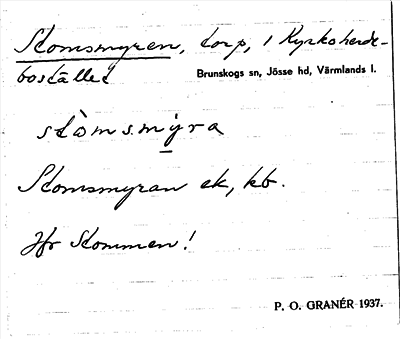 Stomsmyren, torp, i Kyrkoherde-
bostället
Brunskogs sn, Jösse hd, Värmlands l.
stòmsmy̱ra
Stomsmyran ek, kb.
Jfr Stommen!
P. O. GRANÉR 1937.